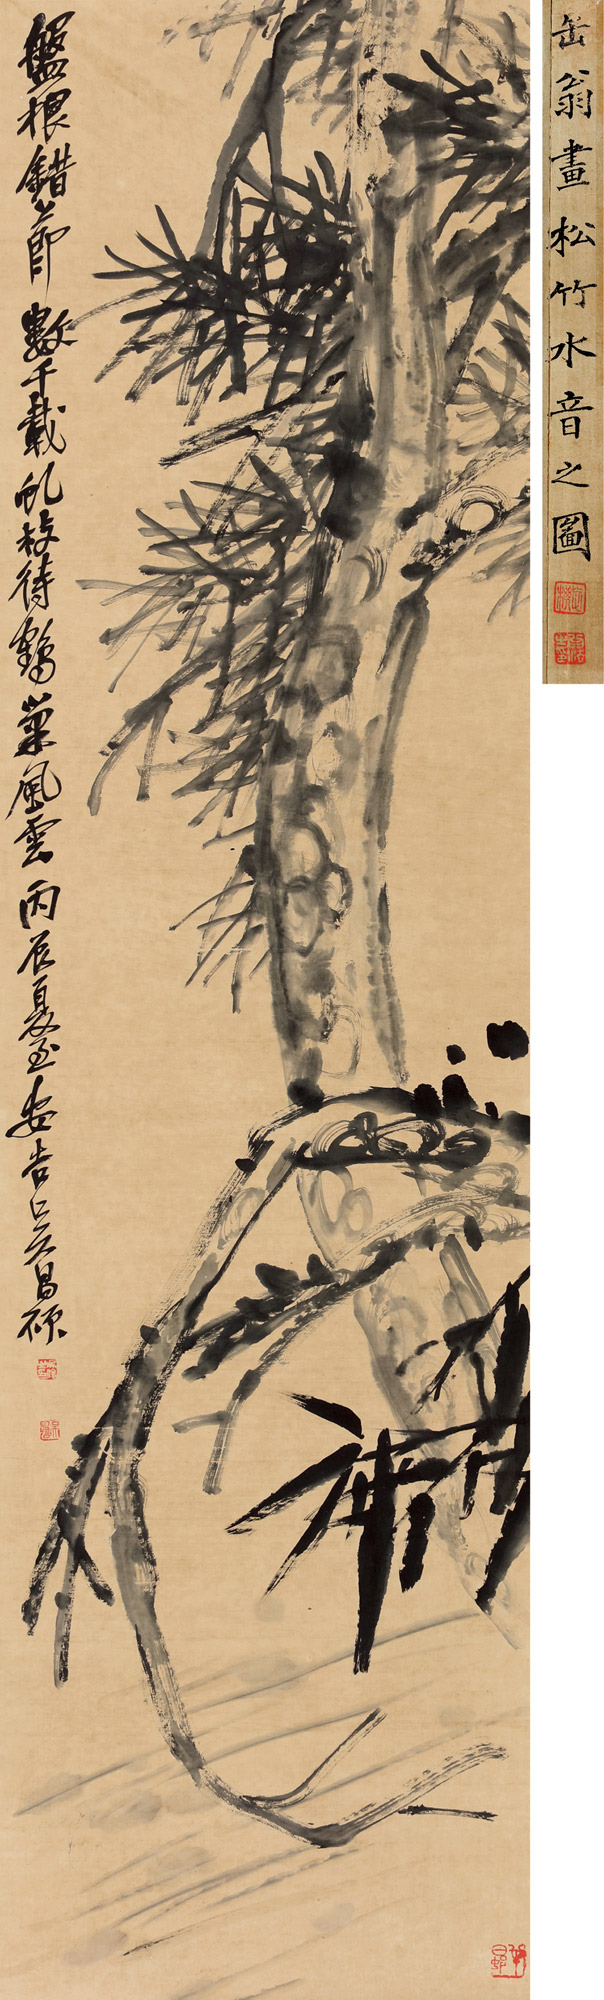 缶翁畫松竹水音之圖
盤根錯節數千載虬枝待鶴巢風雲丙辰夏至安吉吳昌碩